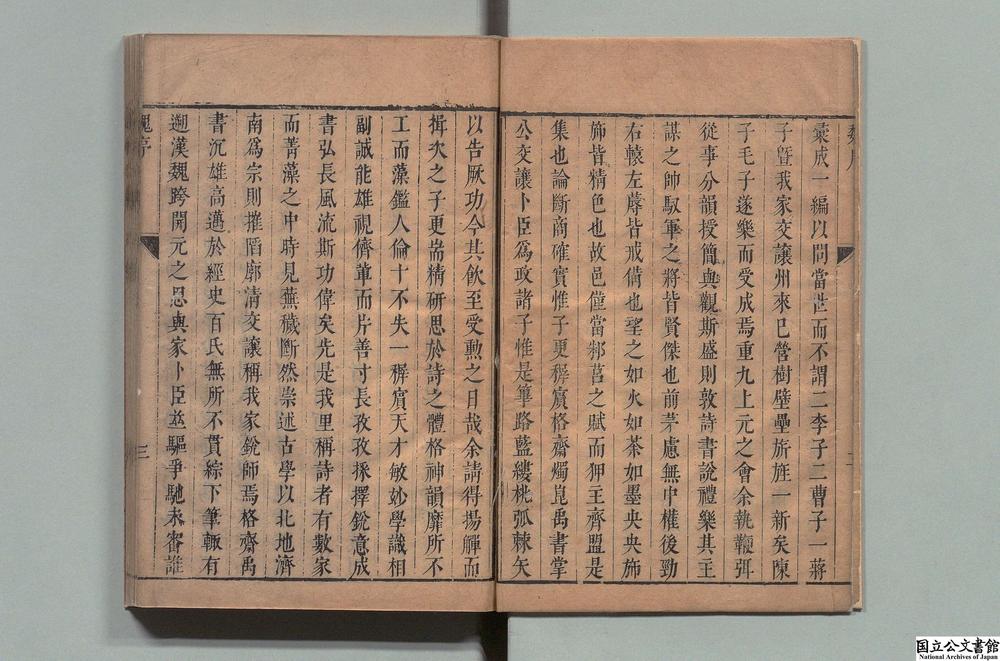 彙成一編以問當世而不謂二李子二曹子一蔣
子曁我家交讓州來已營樹壁壘旂旌一新矣陳
子毛子遂樂而受成焉重九上元之會余執鞭弭
從事分韻授簡與觀斯盛則敦詩書說禮樂其主
謀之帥馭軍之將皆賢傑也前茅慮無中權後勁
右轅左蓐皆戒備也望之如火如荼如墨央央斾
斾皆精色也故邑僮當邾莒之賦而狎主齊盟是
集也論斷商確實惟子更穉賔格齋燭崑禹書掌
公交讓卜臣爲政諸子惟是篳路藍縷桃弧棘矢
以告厥功今其飲至受勲之日哉余請得揚觶而
揖次之子更耑精研思於詩之體格神韻靡所不
工而藻鑑人倫十不失一穉賔天才敏妙學識相
副誠能雄視儕輩而片善寸長孜孜採擇銳意成
書弘長風流斯功偉矣先是我里稱詩者有數家
而菁藻之中時見蕪穢斷然崇述古學以北地濟
南爲宗則摧䧟廓清交讓稱我家銳師焉格齋禹
書沉雄高邁於經史百氏無所不貫綜下筆輙有
遡漢魏跨開元之思與家卜臣並驅爭馳未審誰
魏序
三
国立公文書館
National Archives of Japan